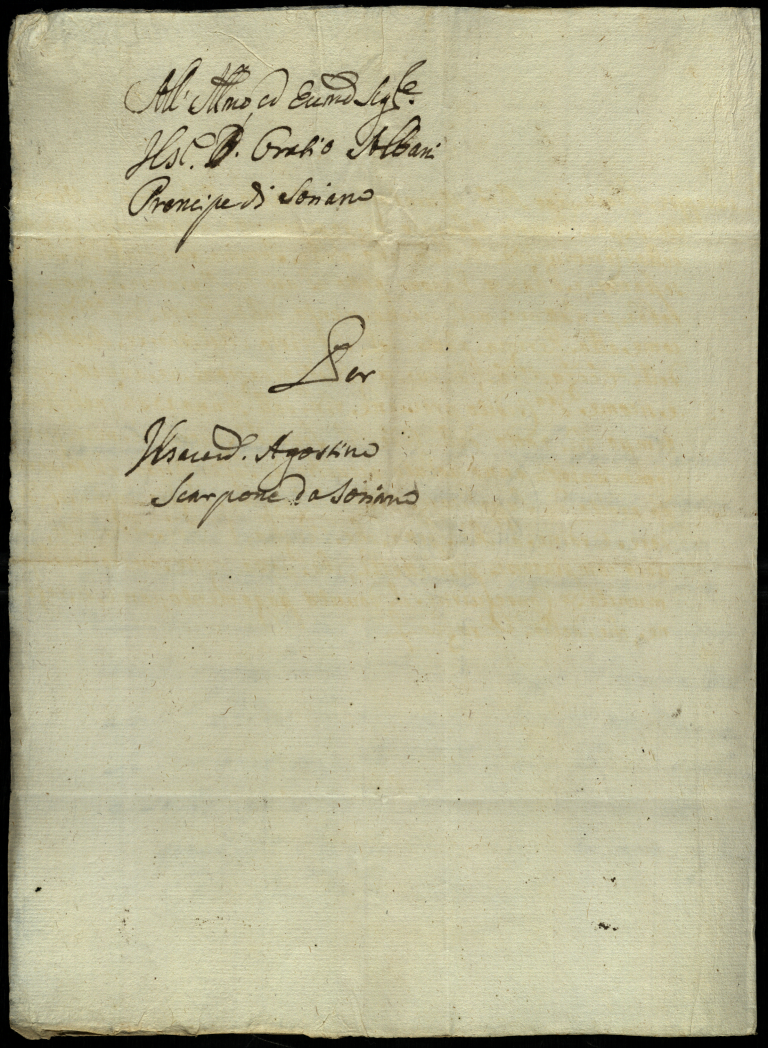 All' Illmo, ed Eccmo Sig.re
Il Sig.r D. Oratio Albani
Prencipe di Soriano
Per
Il sacerd. Agostino
Scarpone da Soriano